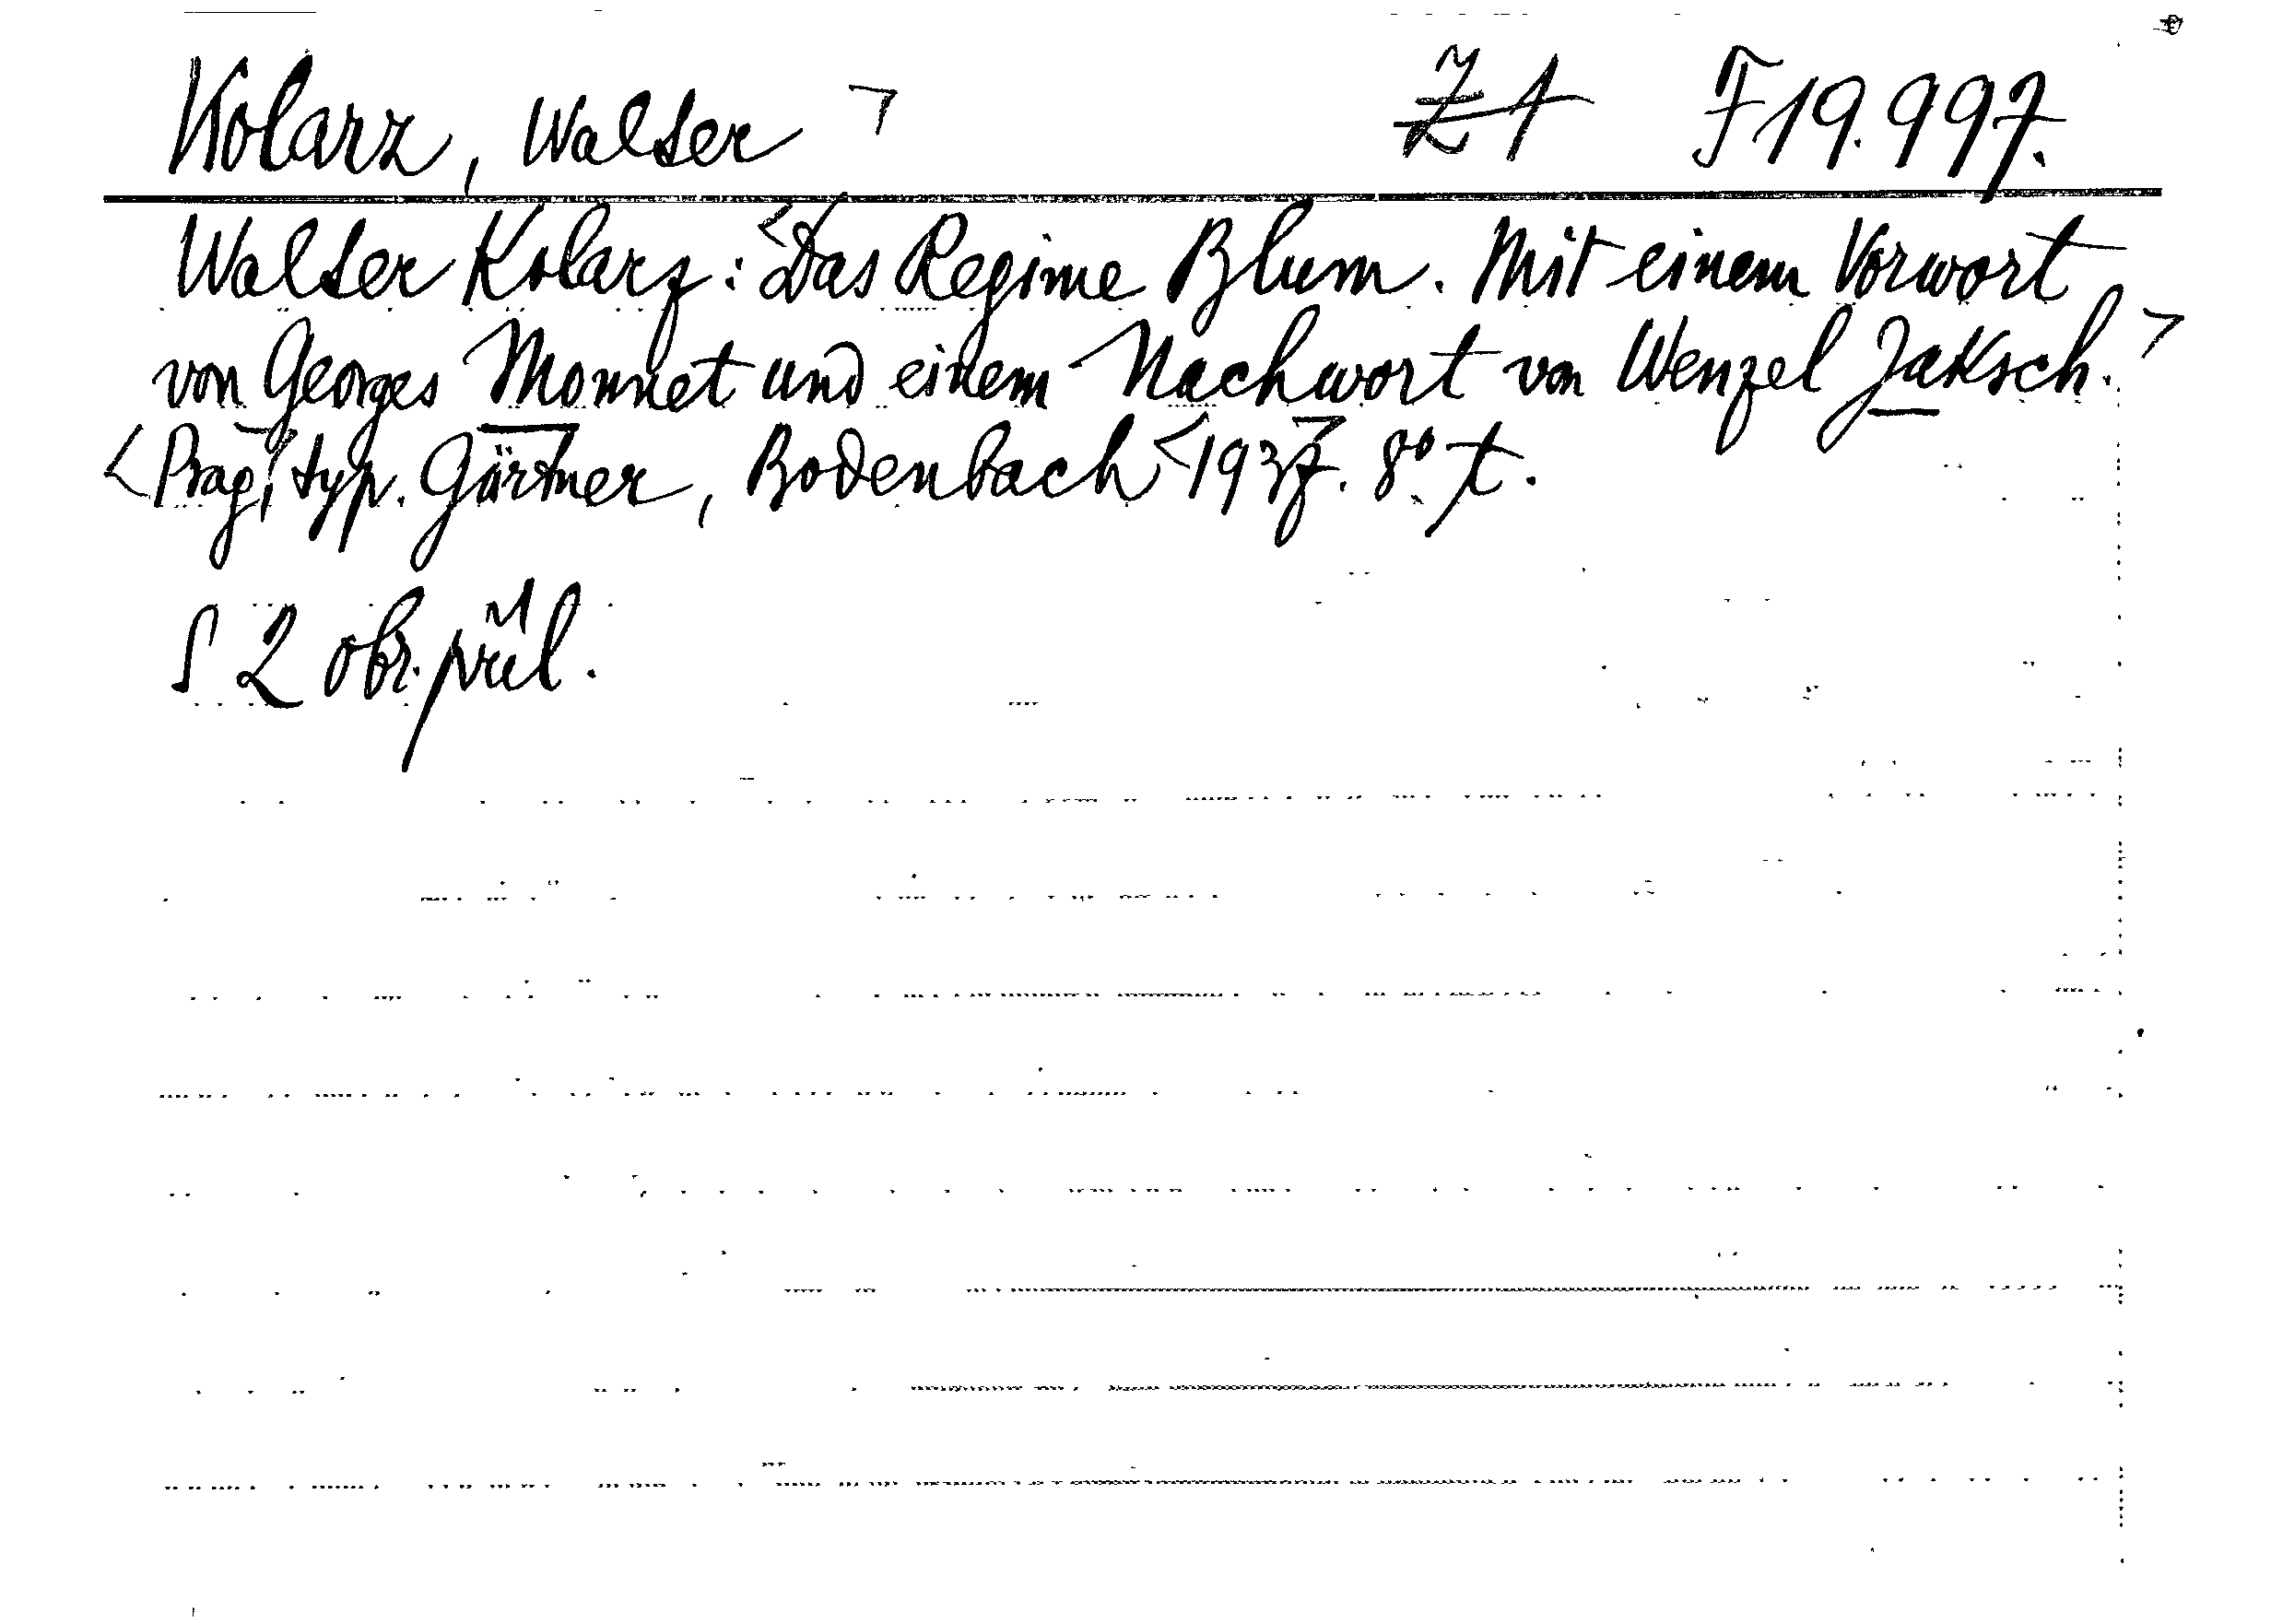 Kolarz, Walter ㄱ Z 1 F 19.997.
Walter Kolarz: <Das Regime Blum. Mit einem Vorwort
von Georges Monnet und einem Nachwort von Wenzel Jaksch.>
<Prag, typ. Gärtner, Bodenbach <1937. 8° t.
S 2 obr. příl.